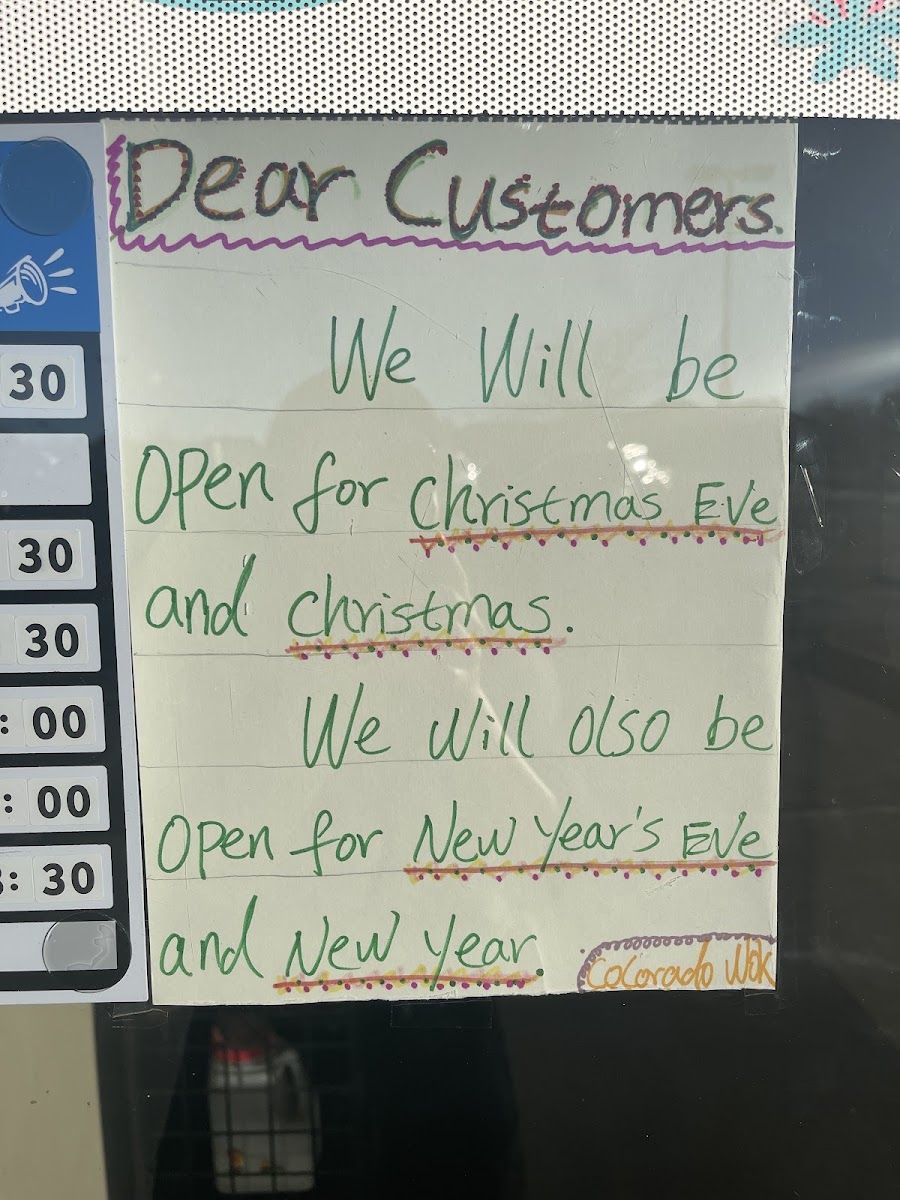 Dear Customers.
We Will be
Open for Christmas Eve
and Christmas.
We Will Olso be
Open for New Year's Eve
and New Year.
Colorado Wok
30
30
30
: 00
: 00
: 30